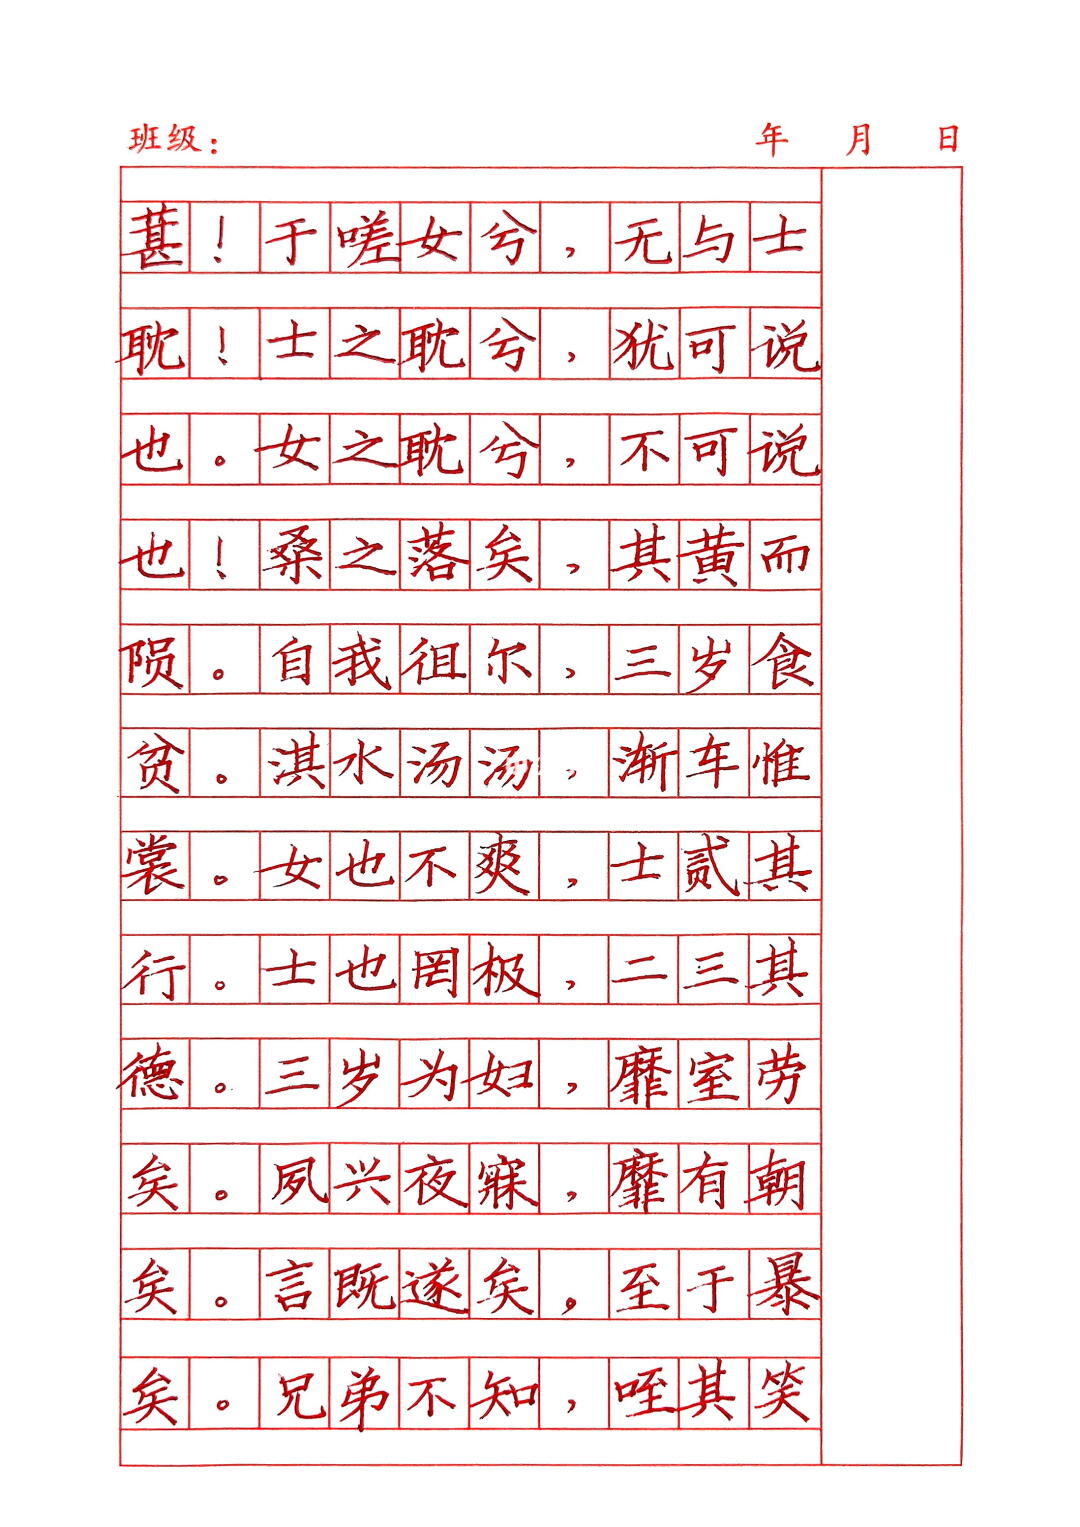 班级： 年 月 日
葚！于嗟女兮，无与士
耽！士之耽兮，犹可说
也。女之耽兮，不可说
也！桑之落矣，其黄而
陨。自我徂尔，三岁食
贫。淇水汤汤，渐车惟
裳。女也不爽，士贰其
行。士也罔极，二三其
德。三岁为妇，靡室劳
矣。夙兴夜寐，靡有朝
矣。言既遂矣，至于暴
矣。兄弟不知，咥其笑